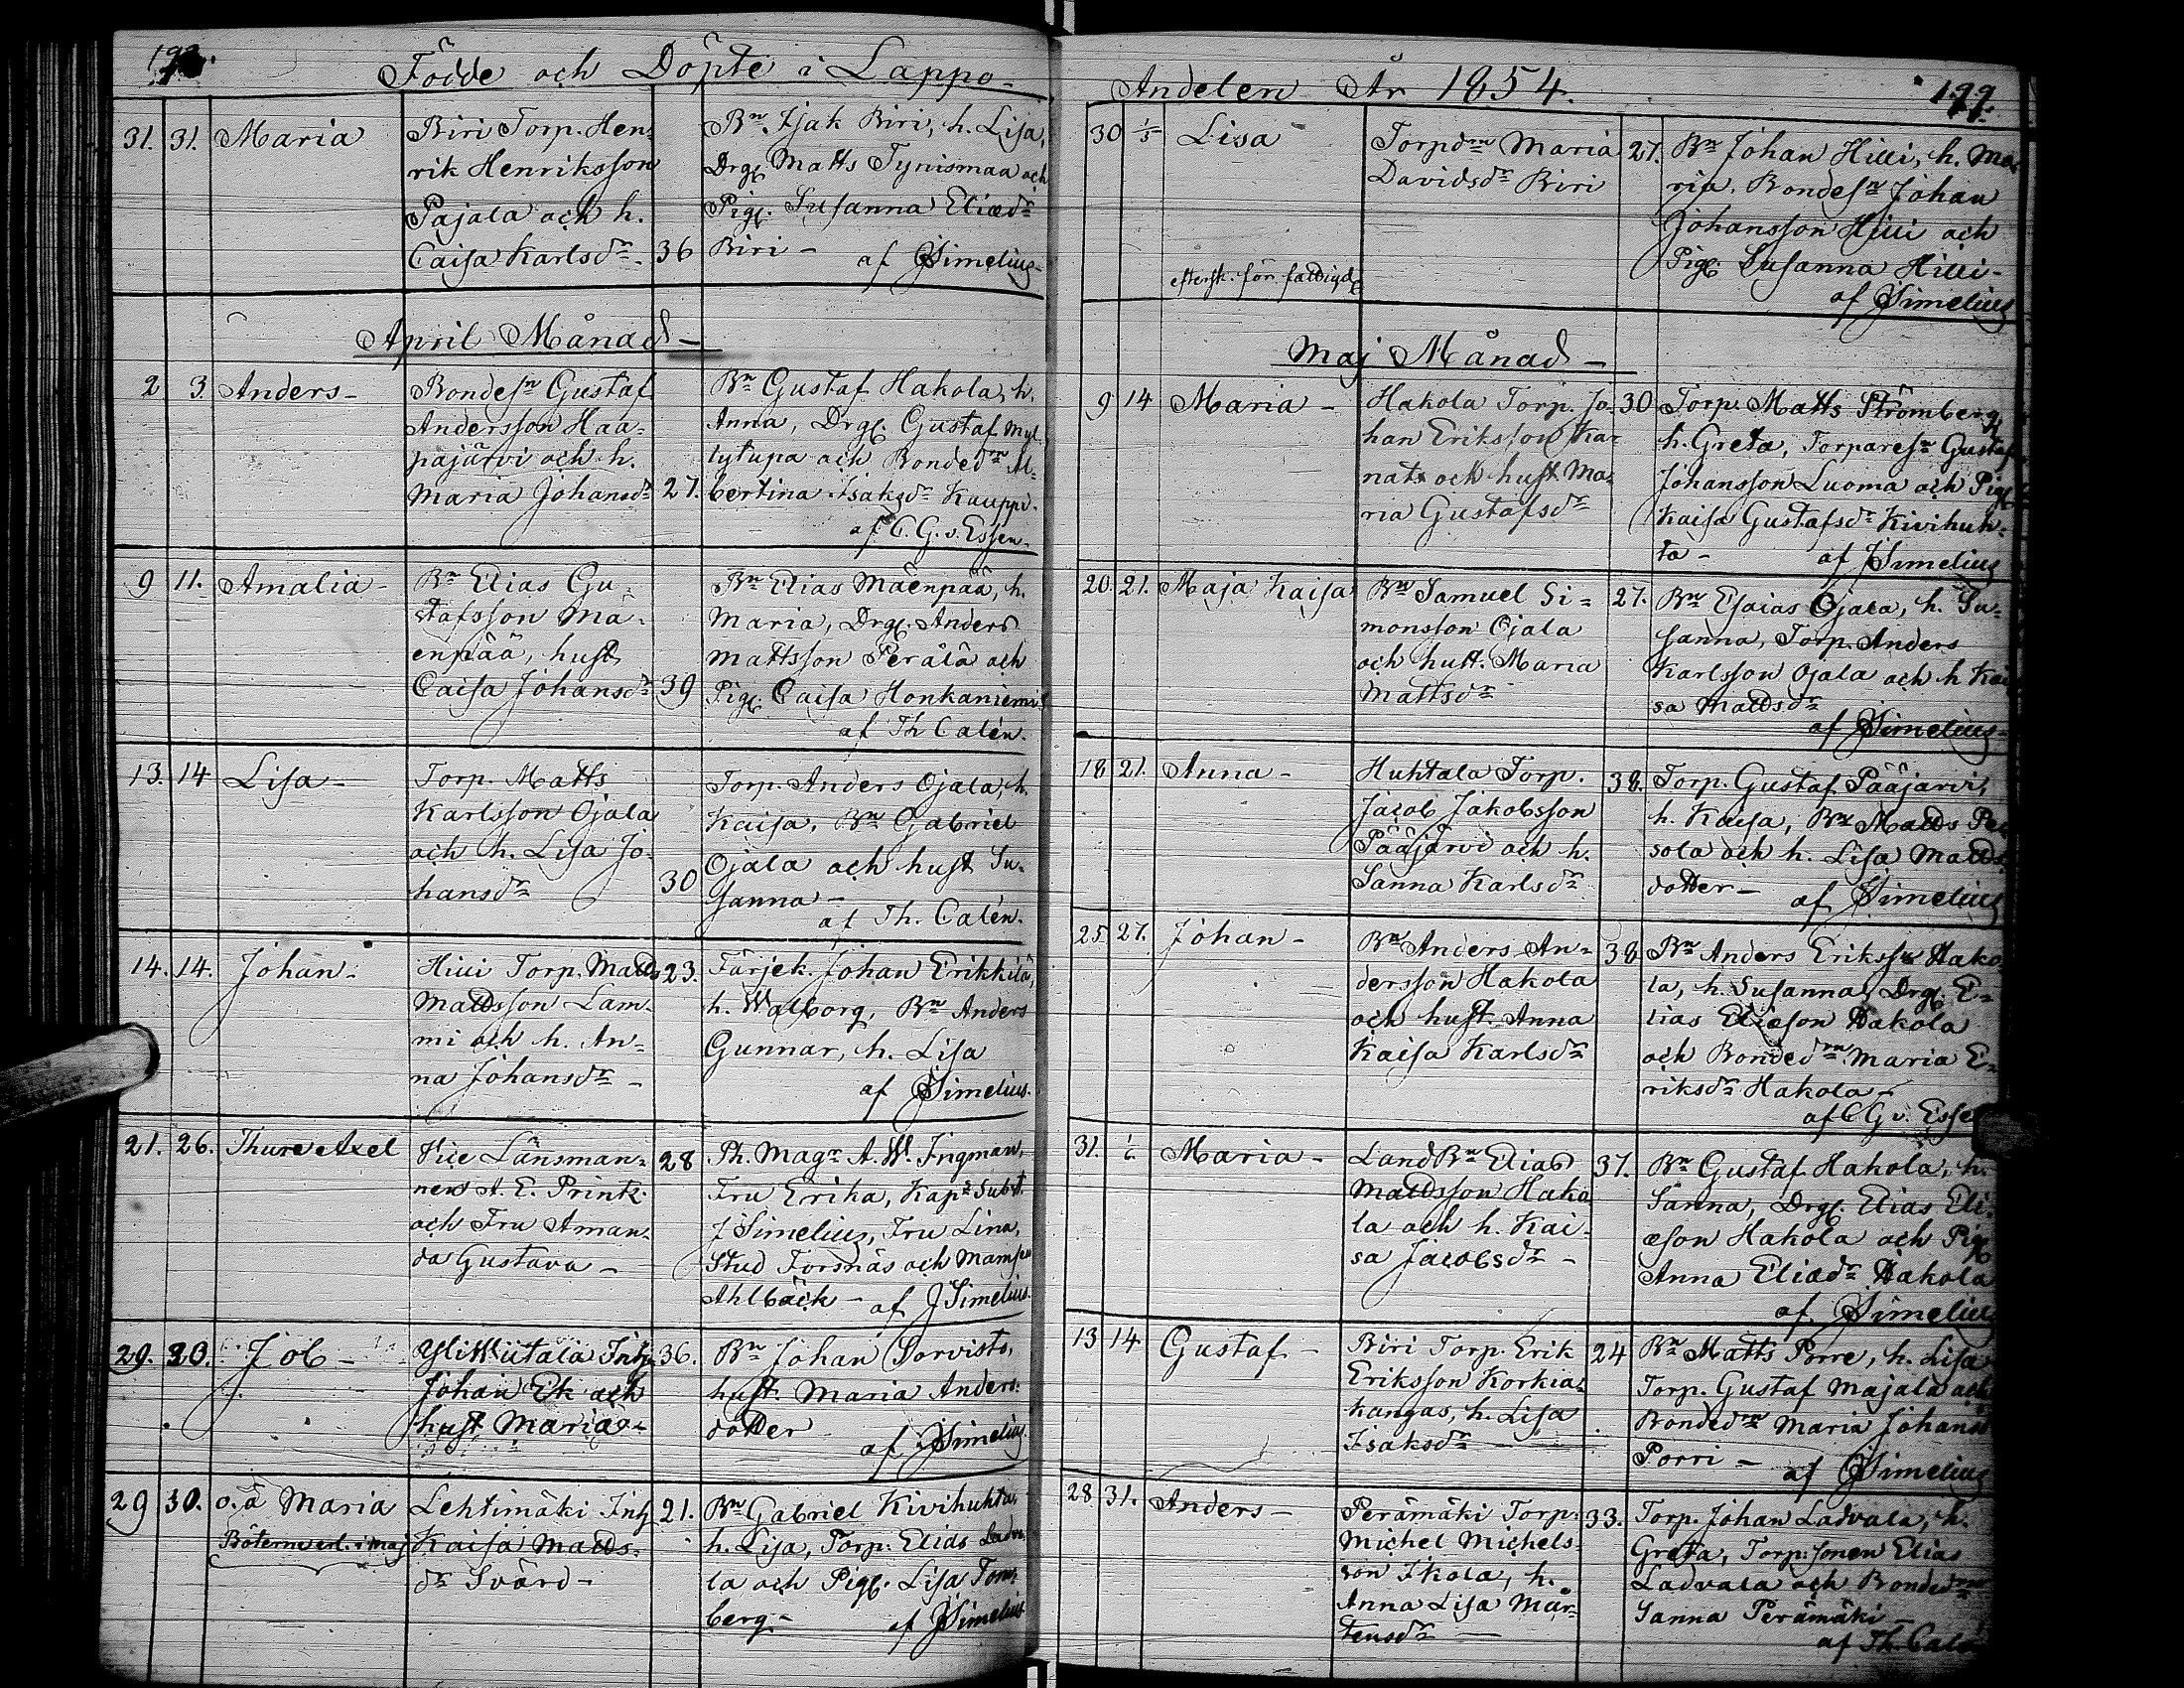 Födde och Döpte i Lappo-
31. 31. Maria
Biri Torp. Hen-
rik Henriksson
Pajala och h.
Caisa Karlsdr. 36
Bn. Isak Biri, h. Lisa,
Drg. Matts Tynismaa och
Pig. Susanna Eliædr
Biri - af JSimelius-
April Månad-
2 3. Anders-
Bondesn Gustaf
Andersson Haa-
pajärvi och h.
Maria Johansdr 27.
Bn Gustaf Hakola, h.
Anna, Drg. Gustaf Myl-
lytupa och Bondedrn Al-
bertina Isaksdr Kauppi.
af C. G. v. Essen-
9 11. Amalia-
Bn Elias Gu-
stafsson Mä-
enpää, hust
Caisa Johansdr 39
Bn Elias Mäenpää, h.
Maria, Drg. Anders
Mattsson Perälä och
Pig. Caisa Honkaniemi
af Th Calén.
13. 14 Lisa-
Torp. Matts
Karlsson Ojala
och h. Lisa Jo-
hansdr 30
Torp. Anders Ojala, h.
Kaisa, Bn Gabriel
Ojala och hust Su-
sanna-
af Th. Calén.
14. 14. Johan-
Hilli Torp. Matts 23.
Mattsson Lam-
mi och h. An-
na Johansdr-
Färjek. Johan Erikkilä,
h. Walborg, Bn Anders
Gunnar, h. Lisa
af JSimelius.
21. 26. Thure Axel
Vice Länsman- 28
nen A. E. Printz
och Fru Aman-
da Gustava-
Ph. Magr A. W. Ingman,
Fru Erika, Kapls Subst.
J Simelius, Fru Lina,
Stud Forsnäs och Mamsll
Ahlbäck- af J Simelius.
29. 30. Job-
YliWiitala Inh. 36.
Johan Ek och
hust Maria-
Bn Johan Sorvisto,
hust. Maria Anders-
dotter
af JSimelius
29 30. o. ä Maria
Böterne erl. i maj
Lehtimäki Inh 21.
Kaisa Matts-
dr Svärd-
Bn Gabriel Kivihuhta,
h. Lisa, Torp. Elias Ladva-
la och Pig. Lisa Torn-
berg- af JSimelius
Andelen År 1854. 199.
30 1/5 Lisa
eftersk. för fattigd.
Torpdrn Maria 27.
Davidsdr Biri
Bn Johan Hilli, h. Ma-
ria, Bondesn Johan
Johansson Hilli och
Pig. Susanna Hilli-
af JSimelius
Maj Månad-
9 14 Maria-
Hakola Torp. Jo- 30
han Eriksson Kar-
nats och hust Ma-
ria Gustafsdr
Torp. Matts Strömberg,
h. Greta, Torparesn Gustaf
Johansson Luoma och Pig.
Kaisa Gustafsdr Kivihuh-
ta- af JSimelius
20. 21. Maja Kaisa
Bn Samuel Si- 27.
monsson Ojala
och hust. Maria
Mattsdr
Bn Esaias Ojala, h. Su-
sanna, Torp. Anders
Karlsson Ojala och h Kai
sa Mattsdr
af JSimelius-
18 21. Anna-
Huhtala Torp. 38.
Jacob Jakobsson
Pääjärvi och h.
Sanna Karlsdr
Torp. Gustaf Pääjärvi,
h. Kaisa, Bn Matts Pe
sola och h. Lisa Matts-
dotter- af JSimelius
25 27. Johan-
Bn Anders An- 38
dersson Hakola
och hust. Anna
Kaisa Karlsdr
Bn Anders Erikssn Hako-
la, h. Susanna, Drg. E-
lias Eliæson Hakola
och Bondedrn Maria E-
riksdr Hakola-
af C G v. Esse
31. 1/6 Maria-
Land Bn Elias 37.
Mattsson Hako
la och h. Kai-
sa Jacobsdr-
Bn Gustaf Hakola, h.
Sanna, Drg. Elias Eli-
æson Hakola och Pig
Anna Eliædr Hakola
af JSimelius
13 14 Gustaf-
Biri Torp. Erik 24
Eriksson Korkia-
kangas, h. Lisa
Isaksdr-
Bn Matts Porre, h. Lisa
Torp. Gustaf Majala och
Bondedrn Maria Johans
Porri- af JSimelius
28 31. Anders-
Perämäki Torp. 33.
Michel Michels-
son Ikola, h.
Anna Lisa Mår-
tensdr-
Torp. Johan Ladvala, h.
Greta, Torp: sonen Elias
Ladvala och Bondedrn
Sanna Perämäki-
af Th. Calé